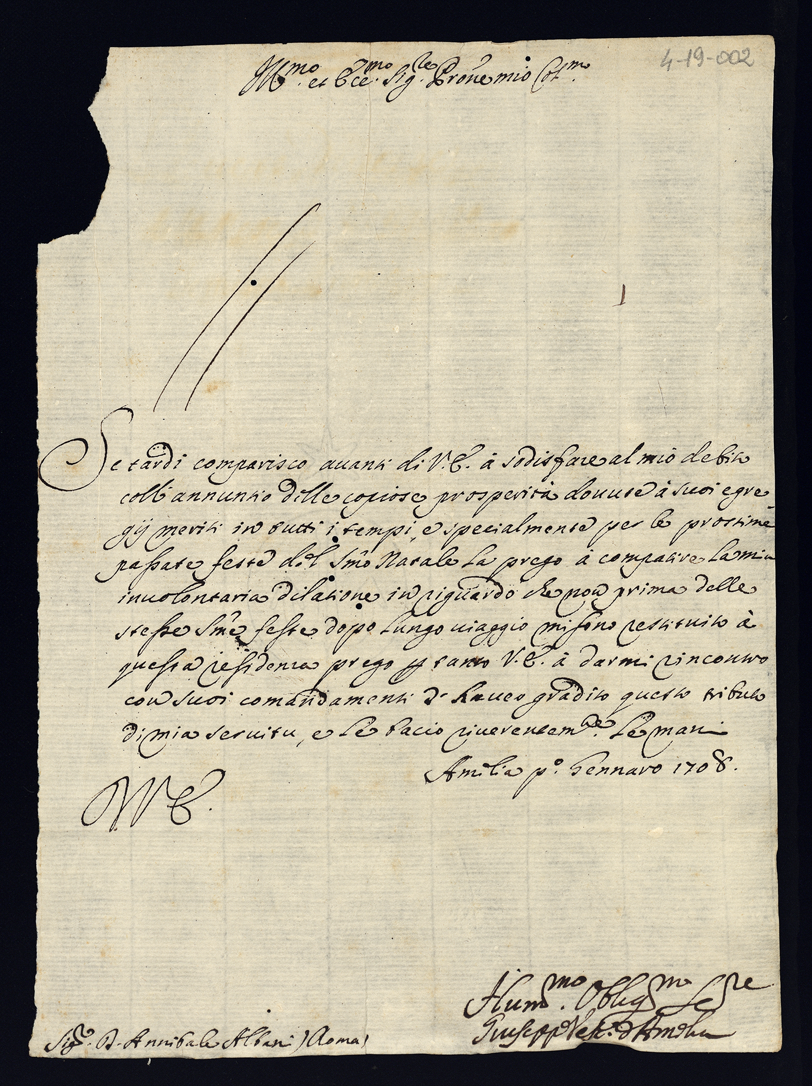 4-19-002
Ill.mo et Ecc.mo Sig.re Prone mio Col.mo
Se tardi comparisco auanti di V.E. à sodisfare al mio debito
coll'annuntio delle copiose prosperità douute à suoi egre
gij meriti in tutti i tempi, e specialmente per le prossime
passate feste del S.mo Natale La prego à compatire La mia
inuolontaria dilatione in riguardo che non prima delle
stesse S.me feste dopo lungo uiaggio mi sono restituito à
questa residenza prego p tanto V.E. à darmi rincontro
con suoi comandamenti d'hauer gradito questo tributo
di mia seruitu, e Le bacio riuerentem.te Le mani
Amelia p.o Gennaro 1708.
V.E.
Hum.mo Oblig.mo Se.re
Giuseppe Vesc. d'Amelia
Sig.r D. Annibale Albani (Roma)